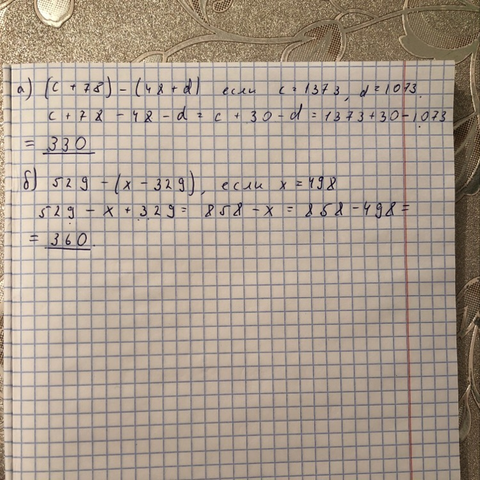 а) (c + 78) - (48 + d) если c = 1373, d = 1073.
c + 78 - 48 - d = c + 30 - d = 1373 + 30 - 1073
= 330
б) 529 - (x - 329), если x = 498
529 - x + 329 = 858 - x = 858 - 498 =
= 360.